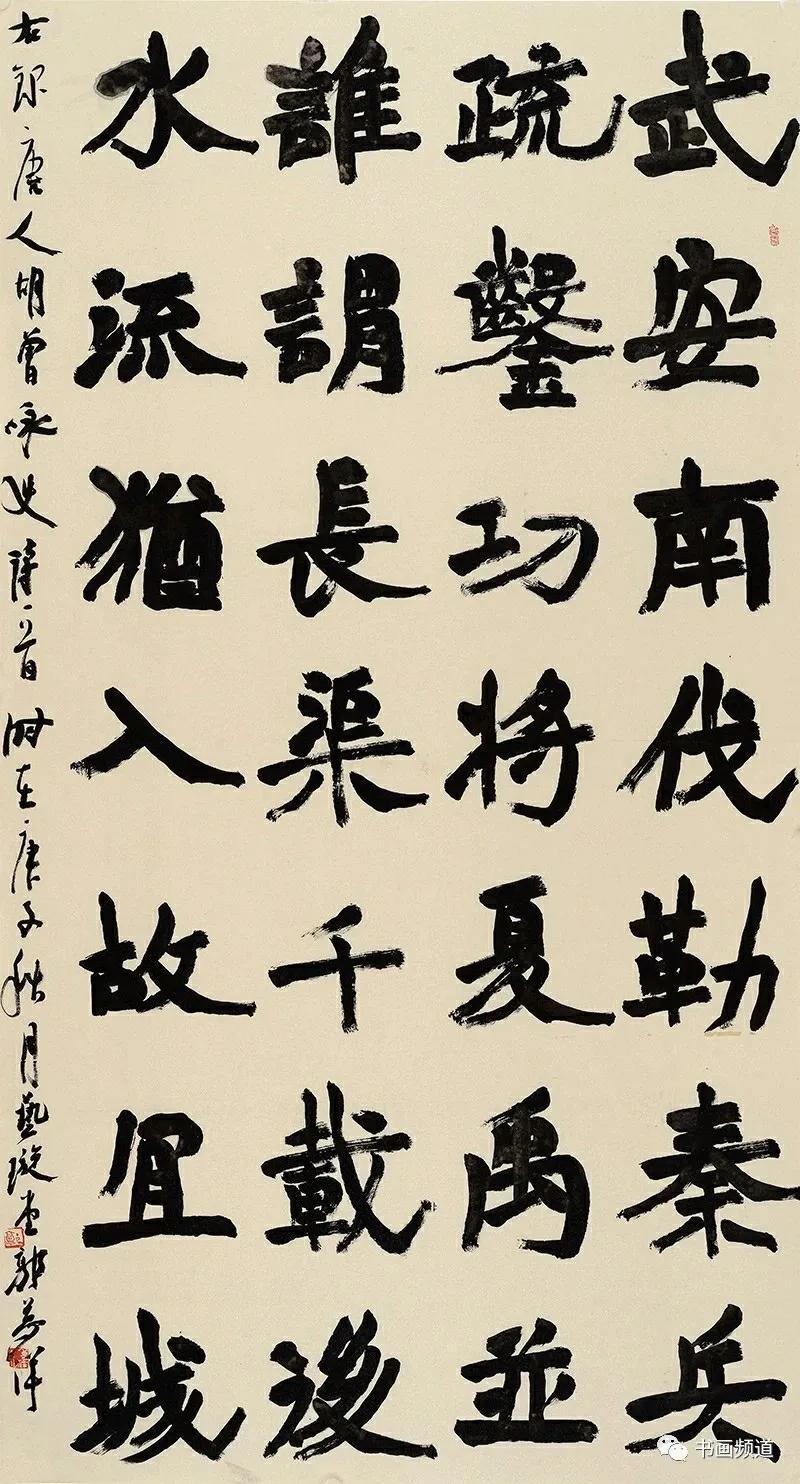 武安南伐勒秦兵
疏鑿功將夏禹並
誰謂長渠千載後
水流猶入故宜城
右錄唐人胡曾咏史詩一首時在庚子秋月藝璇堂
书画频道